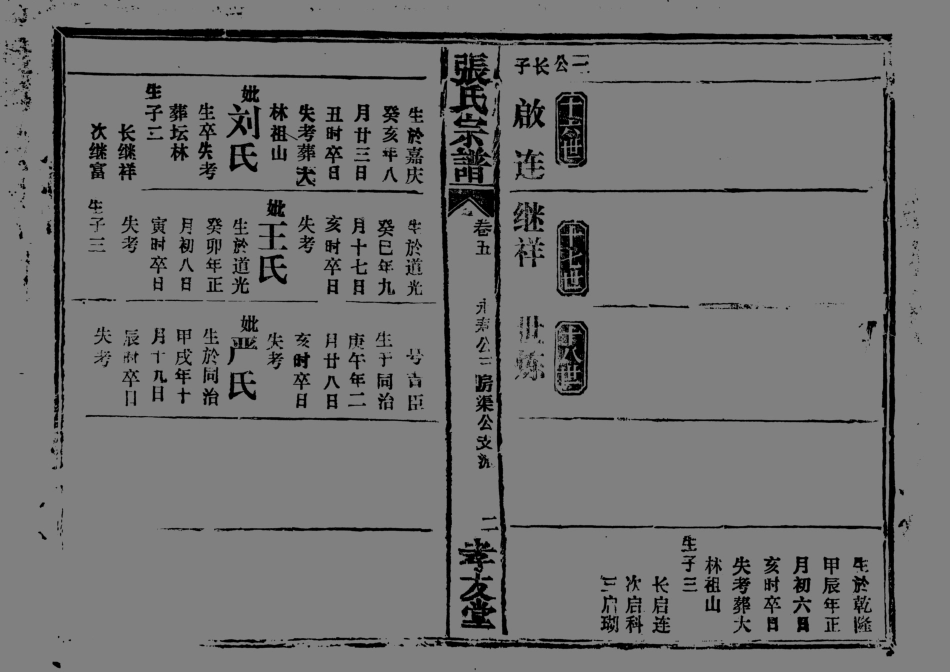 生於乾隆
甲辰年正
月初六日
亥时卒日
失考葬大
林祖山
生子三
长启连
次启科
三启瑚
十六世
十七世
十八世
二公长子
啟连
继祥
世
張氏宗譜
卷五
公三房渠公支派
二
孝友堂
生於嘉庆
癸亥年八
月廿三日
丑时卒日
失考葬大
林祖山
妣刘氏
生卒失考
葬坛林
生子二
长继祥
次继富
生於道光
癸巳年九
月十七日
亥时卒日
失考
妣王氏
生於道光
癸卯年正
月初八日
寅时卒日
失考
生子三
号吉臣
生于同治
庚午年二
月廿八日
亥时卒日
失考
妣严氏
生於同治
甲戌年十
月十九日
辰时卒日
失考